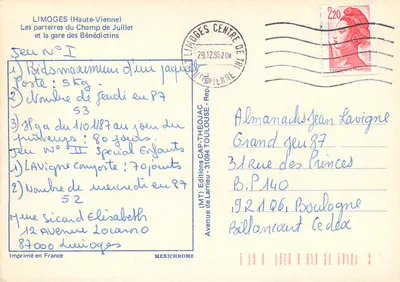 LIMOGES (Haute-Vienne)
Les parterres du Champ de Juillet
et la gare des Bénédictins
Jeu N° I
1) Poids maximum d'un paquet
Poste : 5 Kg.
2) Nombre de jeudi en 87
53
3) Il y a du 110187 au jour du
: 80 jours.
Jeu N° II Spécial Enfants
1) LAVigne comporte : 70 jours
2) Nombre de mercredi en 87
52
Mme Sicard Elisabeth
12 Avenue Locarno
87000 Limoges
Imprimé en France
MEXICHROME
(MT) Editions CAP-THEOJAC
Avenue de Larrieu - 31094 TOULOUSE - Rep.
LIMOGES CENTRE DE TRI
HTE VIENNE
2,20
Almanachs Jean Lavigne
Grand Jeu 87
31 Rue des Princes
B.P 140
92106, Boulogne
Billancourt Cedex